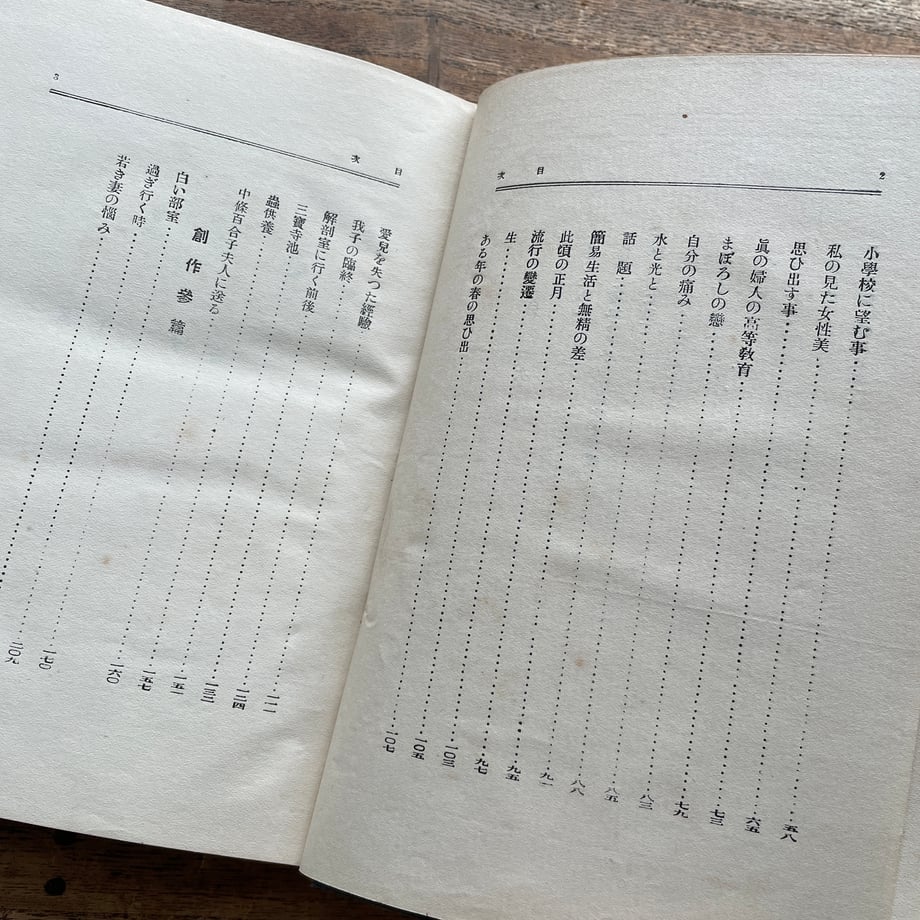 2
目次
小學校に望む事……五八
私の見た女性美……六五
思ひ出す事……七三
眞の婦人の高等敎育……七九
まぼろしの戀……八三
自分の痛み……八五
水と光と……八八
話題……九一
簡易生活と無精の差……九五
此頃の正月……九七
流行の變遷……一〇三
生……一〇五
ある年の春の思ひ出……一〇七
目次
3
愛兒を失つた經驗……一一二
我子の臨終……一二四
解剖室に行く前後……一三二
三寶寺池……一五一
蟲供養……一五七
中條百合子夫人に送る……一六〇
創作參篇
白い部室……一七〇
過ぎ行く時……二〇九
若き妻の悩み……